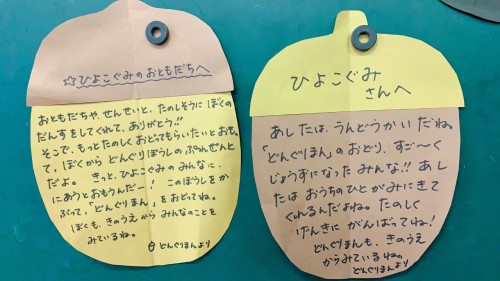 ☆ひよこぐみのおともだちへ
おともだちや、せんせいと、たのしそうに ぼくの
だんすをしてくれて、ありがとう!!
そこで、もっとたのしく おどってもらいたいとおもっ
て、ぼくから どんぐりぼうしの、ぷれぜんと
だよ。 きっと、ひよこぐみのみんなに、
にあうとおもうんだー! このぼうしをか
ぶって、「どんぐりまん」を おどってね。
ぼくも、きのうえから みんなのことを
みているね。
どんぐりまんより
ひよこぐみ
さんへ
あしたは、うんどうかい だね。
「どんぐりまん」のおどり、すご〜く
じょうずになった みんな!! あし
たは おうちのひとがみにきて
くれるんだよね。たのしく
げんきに がんばってね!
どんぐりまんも、きのうえ
からみているね。
どんぐりまんより